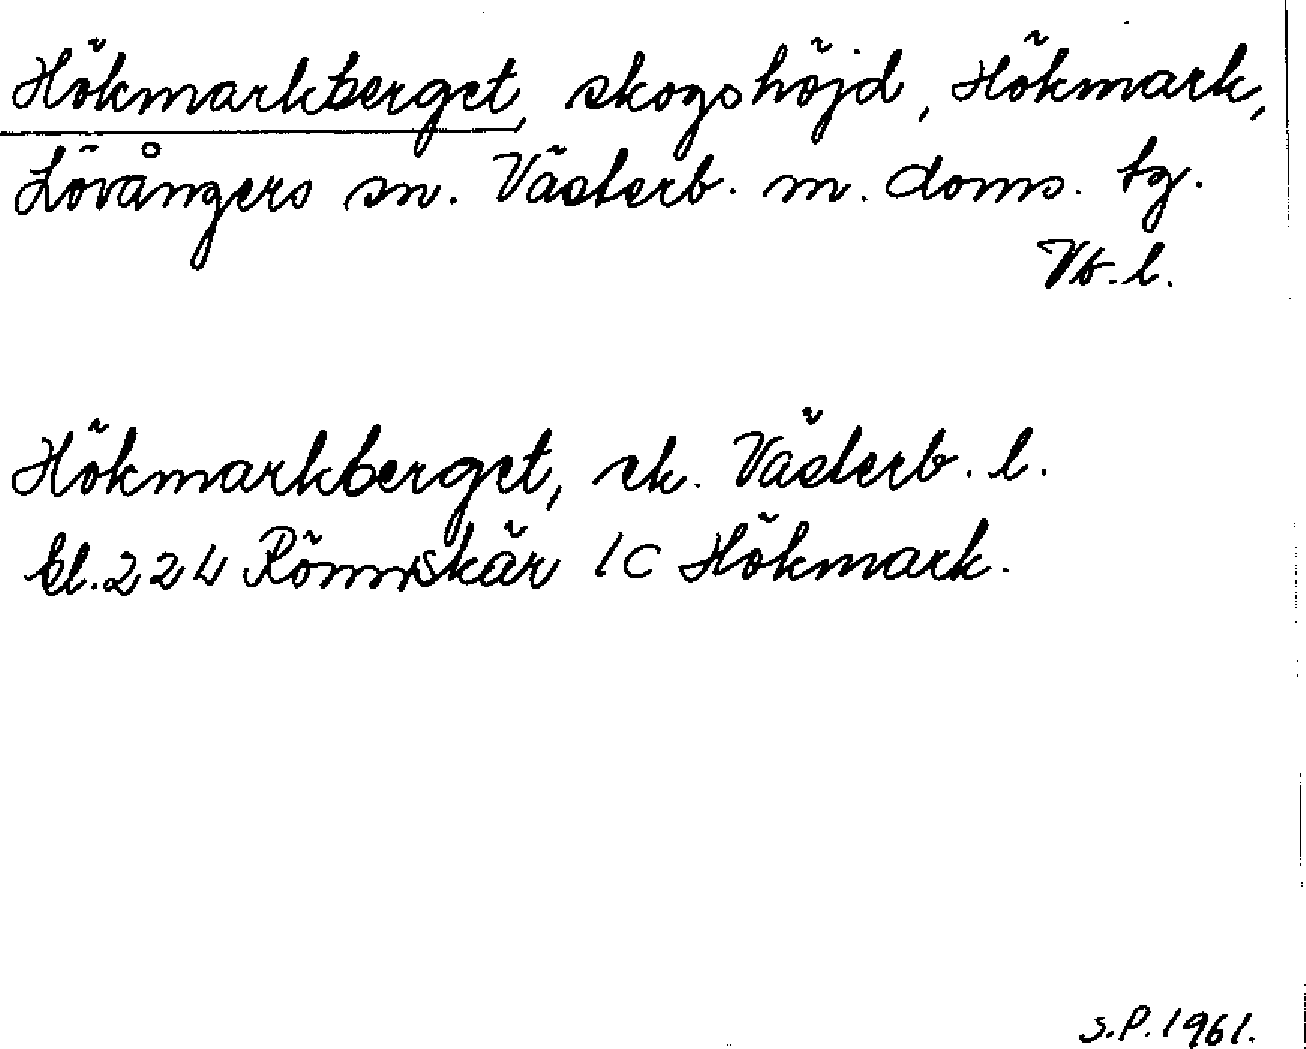 Hökmarkberget, skogshöjd, Hökmark,
Lövångers sn. Västerb. m. doms. tg.
Vb. l.
Hökmarkberget, ek. Västerb. l.
bl. 224 Rönnskär 1C Hökmark.
S.P. 1961.